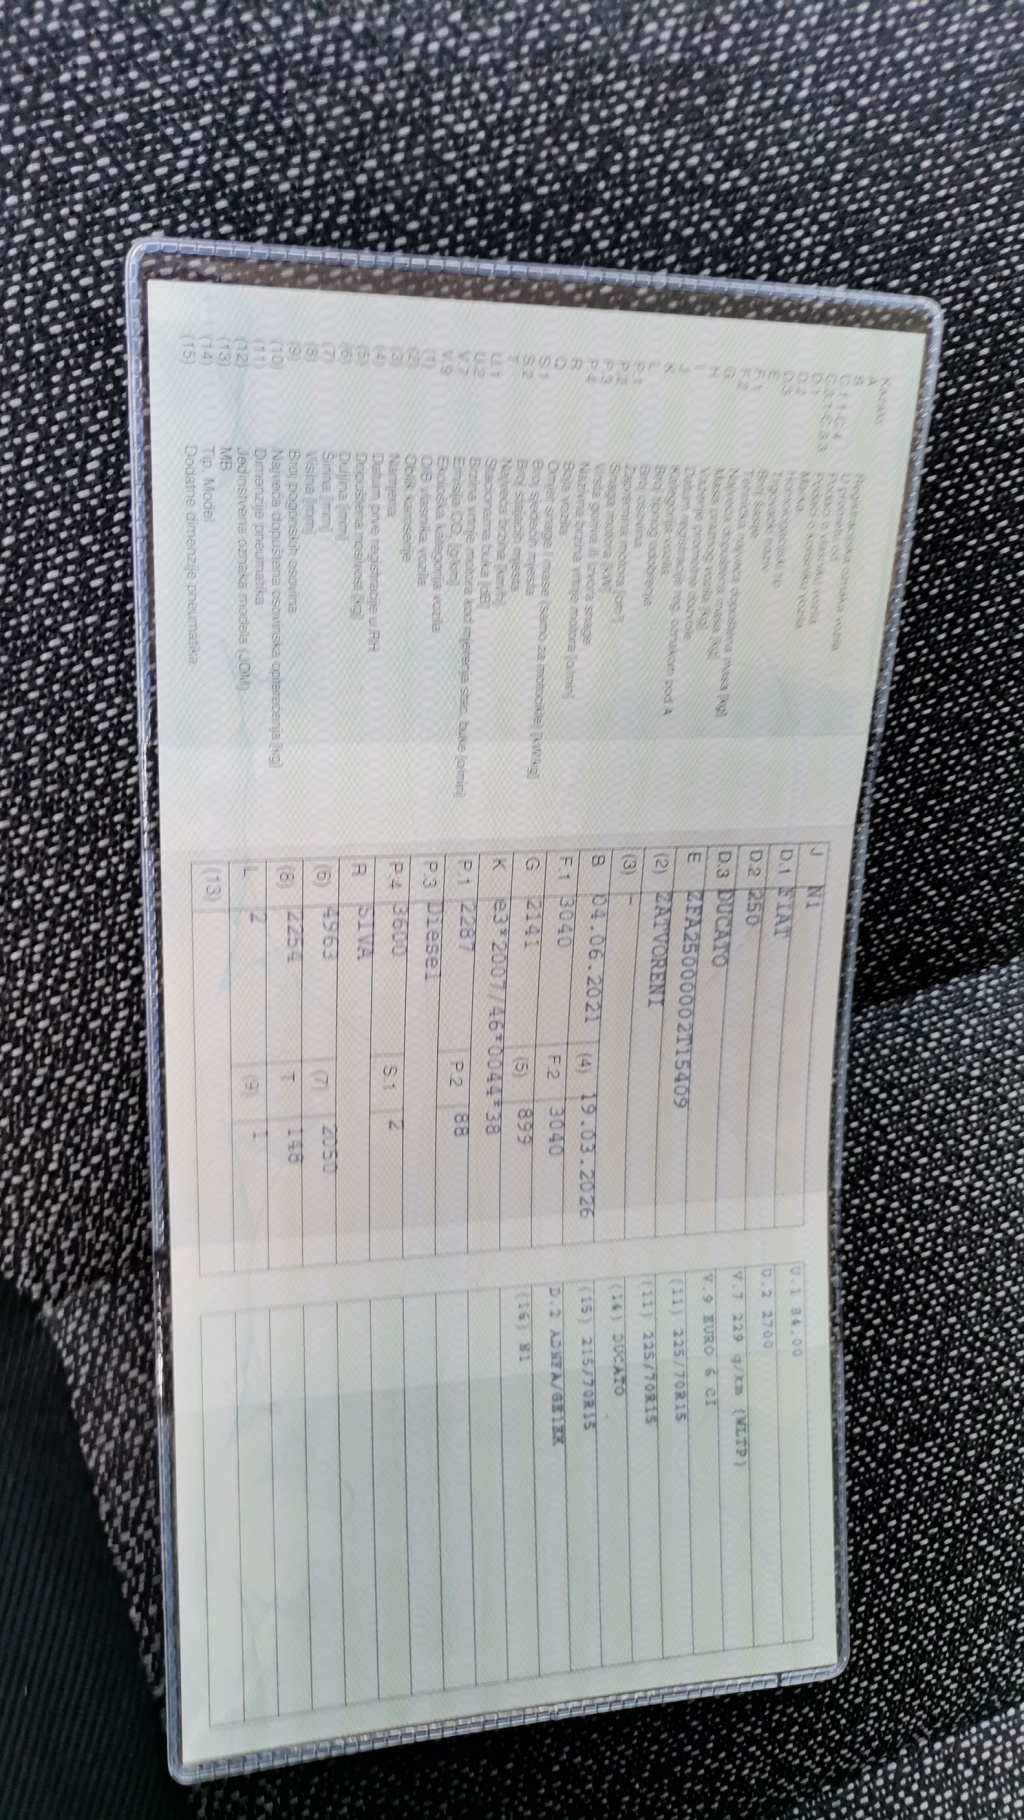 Kazalo:
A Registracijska oznaka vozila
B U prometu od
C.1.1-C.4 Podaci o vlasniku vozila
C.3.1-C.3.3 Podaci o korisniku vozila
D.1 Marka
D.2 Homologacijski tip
D.3 Trgovački naziv
E Broj šasije
F.1 Tehnička najveća dopuštena masa [kg]
F.2 Najveća dopuštena masa [kg]
G Masa praznog vozila [kg]
H Važenje prometne dozvole
I Datum registracije reg. oznakom pod A
J Kategorija vozila
K Broj tipnog odobrenja
L Broj osovina
P.1 Zapremina motora [cm³]
P.2 Snaga motora [kW]
P.3 Vrsta goriva ili izvora snage
P.4 Nazivna brzina vrtnje motora [o/min]
R Boja vozila
Q Omjer snage i mase (samo za motocikle) [kW/kg]
S.1 Broj sjedećih mjesta
S.2 Broj stajaćih mjesta
T Najveća brzina [km/h]
U.1 Stacionarna buka [dB]
U.2 Brzina vrtnje motora kod mjerenja stac. buke [o/min]
V.7 Emisija CO₂ [g/km]
V.9 Ekološka kategorija vozila
(1) OIB vlasnika vozila
(2) Oblik karoserije
(3) Namjena
(4) Datum prve registracije u RH
(5) Dopuštena nosivost [kg]
(6) Duljina [mm]
(7) Širina [mm]
(8) Visina [mm]
(9) Broj pogonskih osovina
(10) Najveća dopuštena osovinska opterećenja [kg]
(11) Dimenzije pneumatika
(12) Jedinstvena oznaka modela (JOM)
(13) MB
(14) Tip, Model
(15) Dodatne dimenzije pneumatika
J N1
D.1 FIAT
D.2 250
D.3 DUCATO
E ZFA25000002T15409
(2) ZATVORENI
(3) -
B 04.06.2021 (4) 19.03.2026
F.1 3040 F.2 3040
G 2141 (5) 899
K e3*2007/46*0044*38
P.1 2287 P.2 88
P.3 Diesel
P.4 3600 S.1 2
R SIVA
(6) 4963 (7) 2050
(8) 2254 T 148
L 2 (9) 1
(13)
U.1 84.00
U.2 2700
V.7 229 g/km (WLTP)
V.9 EURO 6 CI
(11) 225/70R15
(11) 225/70R15
(14) DUCATO
(15) 215/70R15
D.2
(16) N1